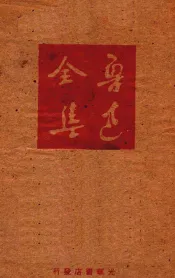 魯迅
全集
光華書店發行